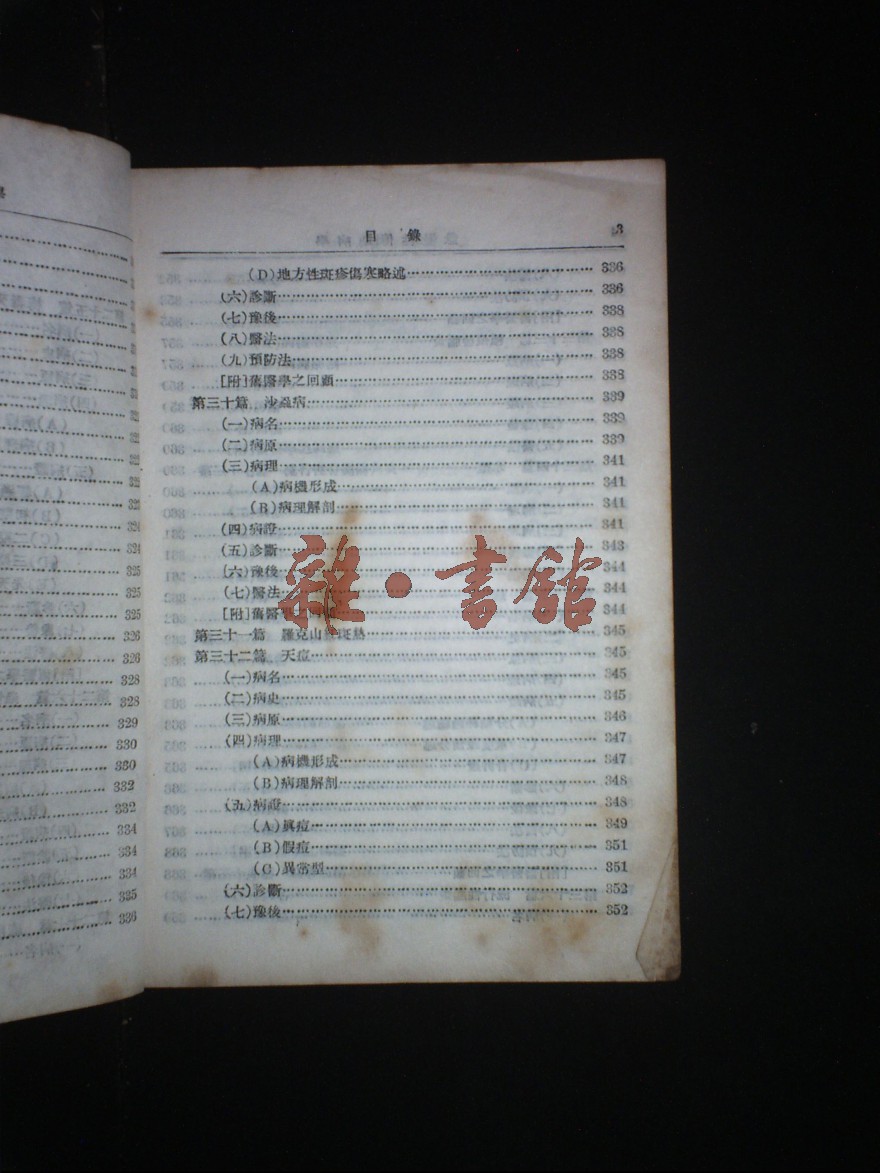 目錄 3
(D)地方性斑疹傷寒略述 336
(六)診斷 336
(七)豫後 338
(八)醫法 338
(九)預防法 338
[附]舊醫學之回顧 338
第三十篇 沙蝨病 339
(一)病名 339
(二)病原 339
(三)病理 341
(A)病機形成 341
(B)病理解剖 341
(四)病證 341
(五)診斷 343
(六)豫後 344
(七)醫法 344
[附]舊醫學之回顧 344
第三十一篇 羅克山 斑熱 345
第三十二篇 天痘 345
(一)病名 345
(二)病史 345
(三)病原 346
(四)病理 347
(A)病機形成 347
(B)病理解剖 348
(五)病證 348
(A)眞痘 349
(B)假痘 351
(C)異常型 351
(六)診斷 352
(七)豫後 352
雜·書館
325
325
326
326
328
328
329
330
330
332
332
334
334
334
335
336